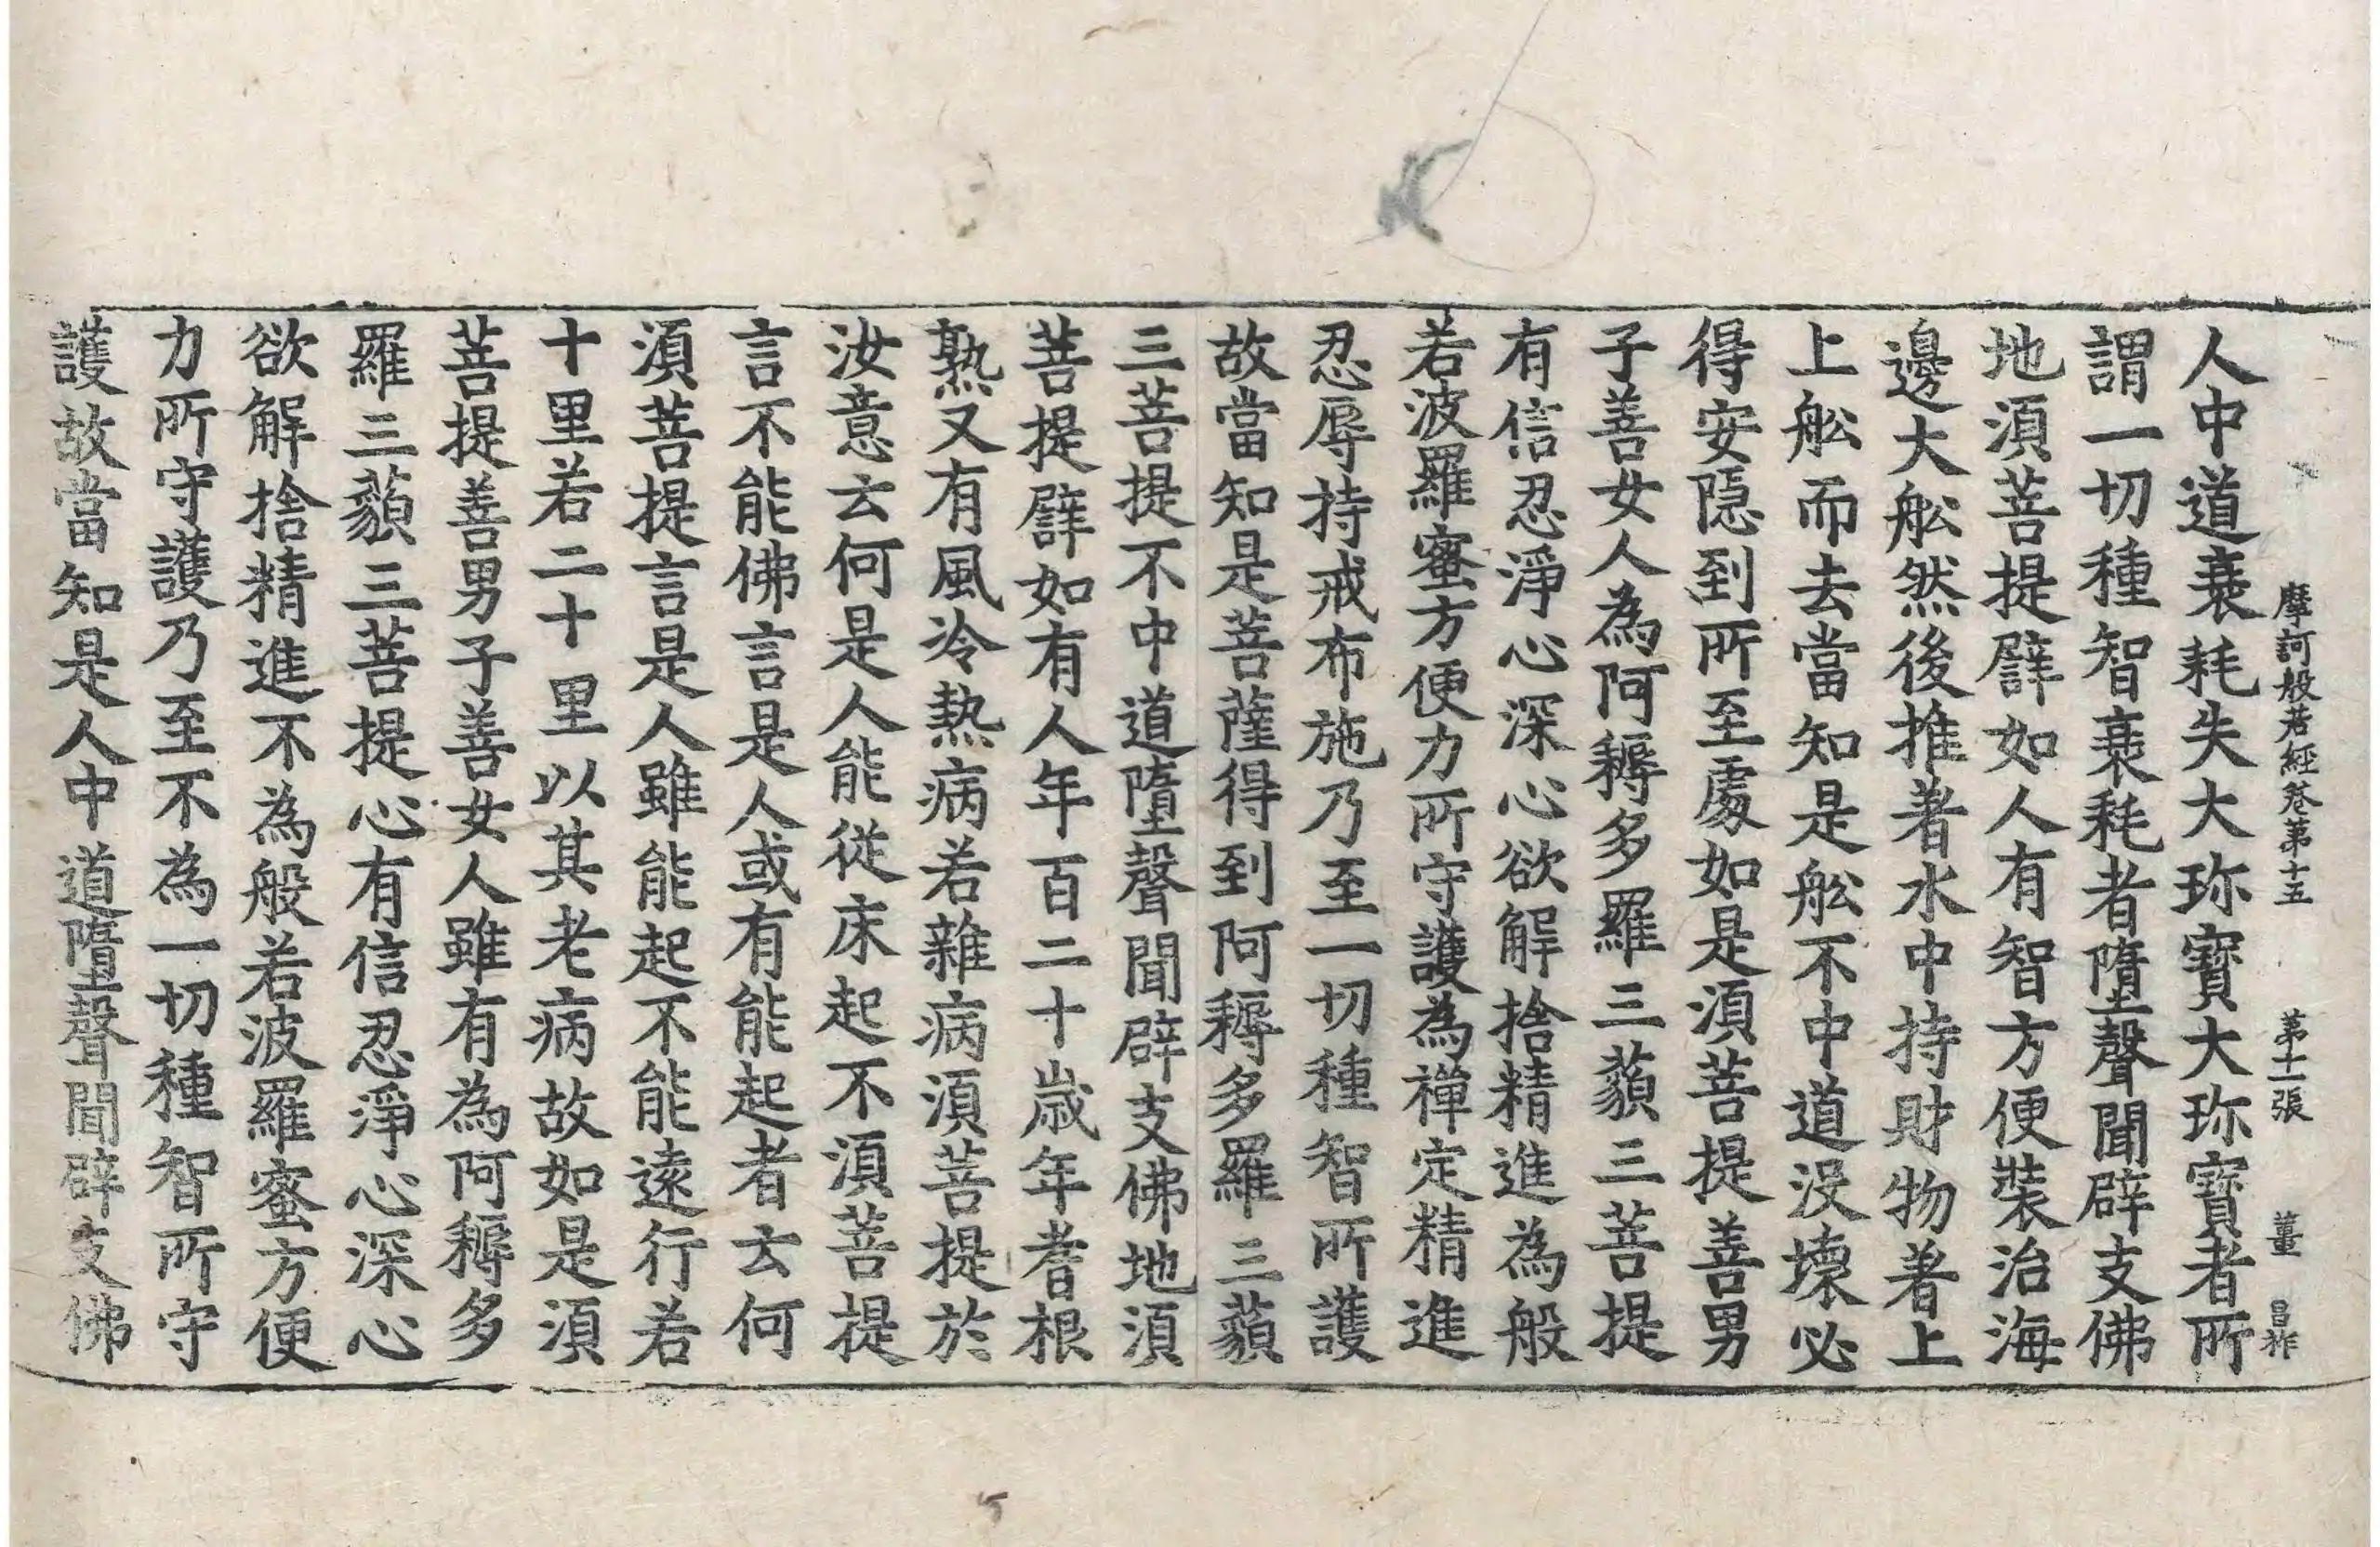 摩訶般若經卷第十五　第十一張　董　昌祚
人中道衰耗失大珎寶大珎寶者所
謂一切種智衰耗者墮聲聞辟支佛
地湏菩提譬如人有智方便裝治海
邊大舩然後推著水中持財物著上
上舩而去當知是舩不中道没壞必
得安隱到所至處如是湏菩提善男
子善女人為阿耨多羅三藐三菩提
有信忍淨心深心欲解捨精進為般
若波羅蜜方便力所守護為禅定精進
忍辱持戒布施乃至一切種智所護
故當知是菩薩得到阿耨多羅三藐
三菩提不中道墮聲聞辟支佛地湏
菩提譬如有人年百二十歲年耆根
熟又有風冷熱病若雜病湏菩提於
汝意云何是人能從床起不湏菩提
言不能佛言是人或有能起者云何
湏菩提言是人雖能起不能遠行若
十里若二十里以其老病故如是湏
菩提善男子善女人雖有為阿耨多
羅三藐三菩提心有信忍淨心深心
欲解捨精進不為般若波羅蜜方便
力所守護乃至不為一切種智所守
護故當知是人中道墮聲聞辟支佛